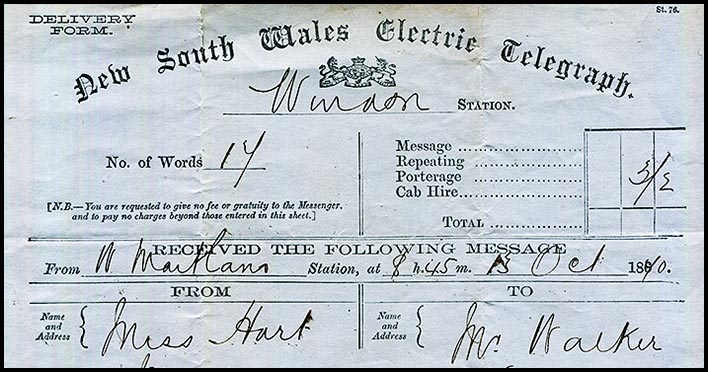 DELIVERY FORM.
St. 76.
New South Wales Electric Telegraph.
Windsor STATION.
No. of Words 14
Message
Repeating
Porterage
Cab Hire
TOTAL
[N.B.—You are requested to give no fee or gratuity to the Messenger,
and to pay no charges beyond those entered in this sheet.]
RECEIVED THE FOLLOWING MESSAGE
From W Maitland Station, at 8 h. 45 m. 13 Oct 18
FROM TO
Name and Address Miss Hart Name and Address Mr Walker